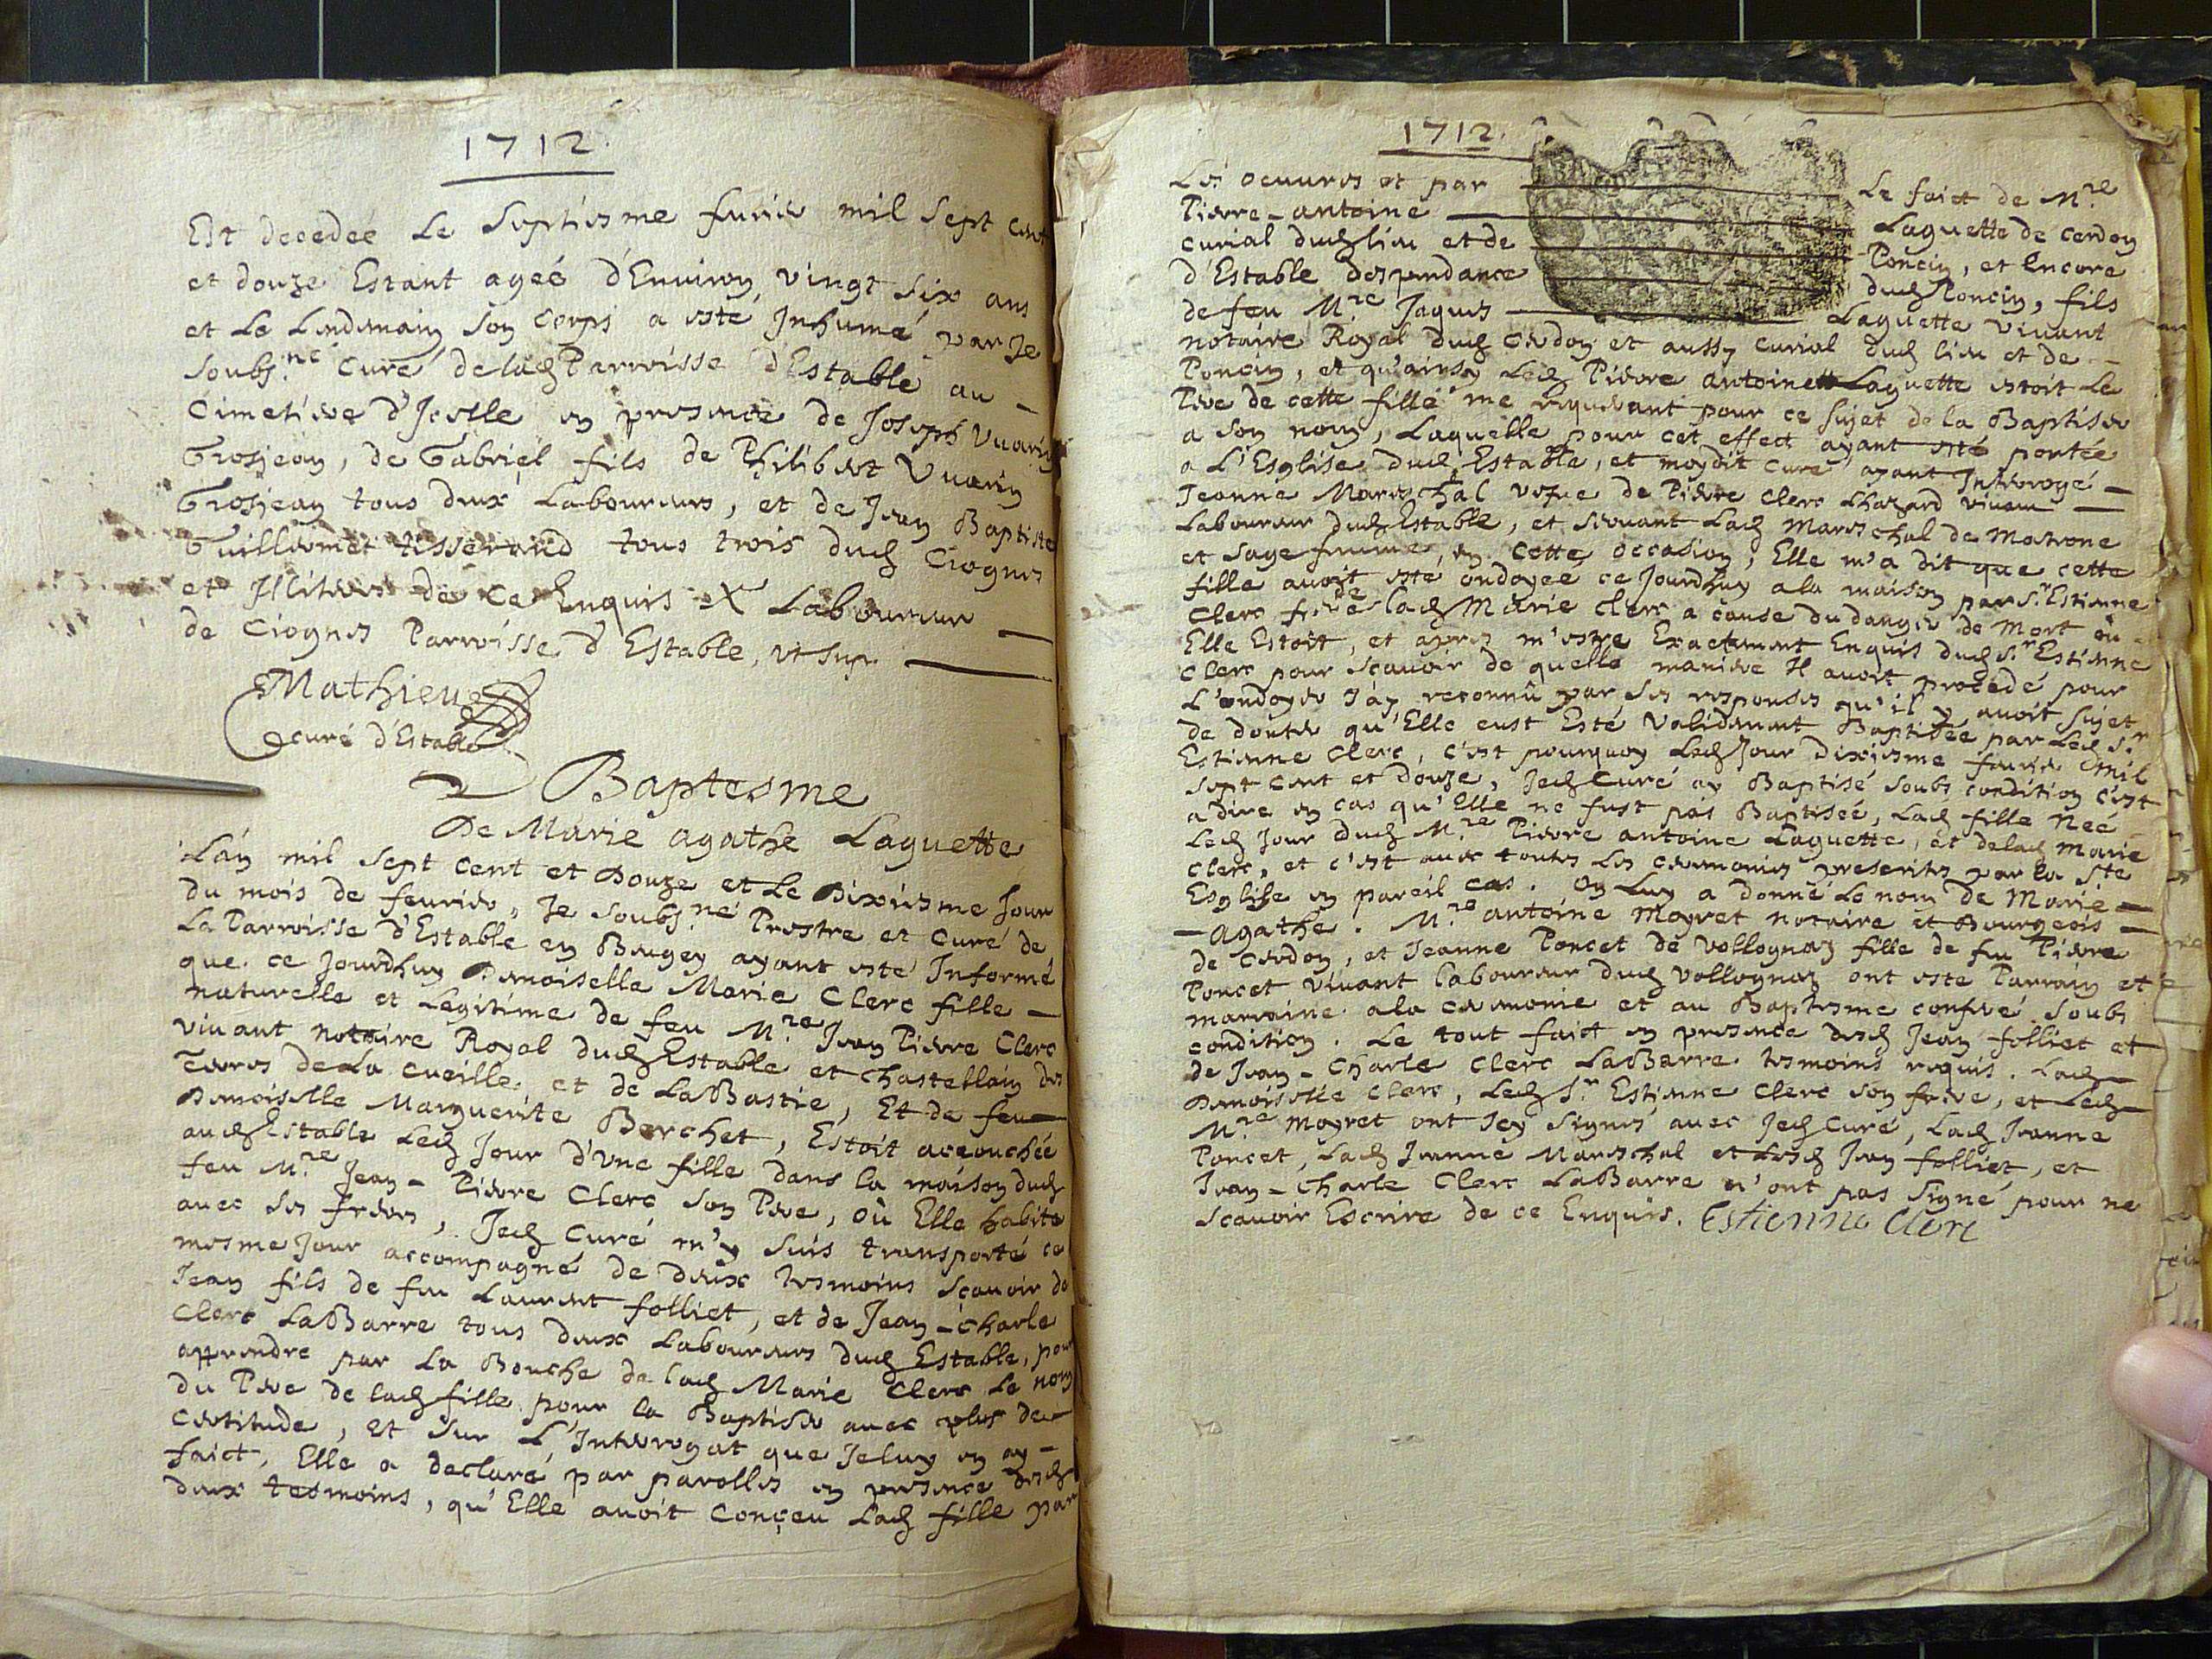 1712.
Est decedeé Le Septiesme fevrier mil Sept cent
et douze Estant ageé d'Environ vingt six ans
et Le Lendemain Son Corps a esté Inhumé par Je
Soubs.né Curé de lad Parroisse d'Estable au —
Cimetiere d'Icelle en presence de Joseph Vuarin
Grosjean, de Gabriel fils de Philibert Vuarin
Grosjean tous deux Laboureurs, et de Jean Baptiste
Guillermet tisserand tous trois dud Ciognes
et Illiteres de ce Enquis X Laboureur —
de Ciognes Parroisse d'Estable, ut sup. —
Mathieu
curé d'Estable
Baptesme
De Marie agathe Laguette
L'an mil sept cent et Douze et Le Dixiesme Jour
du mois de feurier, Je soubs.né Prestre et Curé de
La Parroisse d'Estable en Bugey ayant esté Informé
que ce Jourdhuy Damoiselle Marie Clerc fille —
naturelle et Legitime de feu M.re Jean Pierre Clerc
viuant notaire Royal dud Estable et Chastellain des
Terres de La Cueille et de LaBastie, Et de feu —
Damoiselle Marguerite Berchet, Estoit accouchée
aud Estable Led Jour d'vne fille dans la maison dud
feu M.re Jean-Pierre Clerc Son Pere, où Elle habite
auec ses freres, Jed Curé m'y suis transporté ce
mesme Jour accompagné de deux tesmoins Sçauoir de
Jean fils de feu Laurent folliet, et de Jean-Charle
Clerc LaBarre tous deux Laboureurs dud Estable, pour
apprendre par La Bouche de lad Marie Clerc Le nom
du Pere de lad fille pour la Baptiser auec plus de
certitude, et sur L'Interrogat que Je luy en ay —
faict, Elle a declaré par parolles en presence desd
deux tesmoins, qu'Elle auoit Conçeu Lad fille par
1712.
Les oeuures et par Le faict de M.re
Pierre-antoine — Laguette de cerdon
curial dud lieu et de Poncin, et Encore
d'Estable despendance dud Poncin, fils
de feu M.re Jaques — Laguette viuant
notaire Royal dud Cerdon et aussy curial dud lieu et de —
Poncin, et qu'ainsy Led Pierre antoine Laguette estoit Le
Pere de cette fille me requerant pour ce sujet de la Baptiser
a son nom, Laquelle pour cet effect ayant esté portée
a L'Esglise dud Estable, et moydit curé ayant Interrogé —
Jeanne Mareschal vefue de Pierre Clerc Lhazard viuant —
Laboureur dud Estable, et seruant Lad Mareschal de Matrone
et sage femme en cette occasion, Elle m'a dit que cette
fille auoit esté ondoyeé ce Jourdhuy a la maison par S.r Estienne
Clerc frere de lad Marie Clerc a cause du danger de Mort où
Elle Estoit, et apres m'estre Exactement Enquis dud S.r Estienne
Clerc pour sçauoir de quelle maniere Il auoit procedé pour
L'ondoyer J'ay reconnû par ses responses qu'il y auoit sujet
de douter qu'Elle eust Esté Validement Baptisée par Led S.r
Estienne Clerc, c'est pourquoy Led Jour dixiesme feurier mil
sept cent et douze, Jed Curé ay Baptisé soubs condition c'est
a dire en cas qu'Elle ne fust pas Baptiseé, Lad fille Neé
Led Jour dud M.re Pierre antoine Laguette, et de lad Marie
Clerc, et c'est auec toutes les ceremonies prescrites par la Ste
Esglise en pareil cas. On Luy a donné Le nom de Marie —
—agathe. M.re antoine Moyret notaire et Bourgeois —
de Cerdon, et Jeanne Poncet de Vollognaz fille de feu Pierre
Poncet viuant laboureur dud Vollognaz ont esté Parrain et
marraine a la ceremonie et au Baptesme conferé soubs
condition. Le tout faict en presence desd Jean folliet et
de Jean-Charle Clerc LaBarre tesmoins requis. Lad —
Damoiselle Clerc, Led S.r Estienne Clerc son frere, et Led —
M.re Moyret ont Icy Signés auec Jed Curé, Lad Jeanne
Poncet, Lad Jeanne Mareschal et Lesd Jean folliet, et
Jean-Charle Clerc LaBarre n'ont pas signé pour ne
sçauoir Escrire de ce Enquis. Estienne Clerc